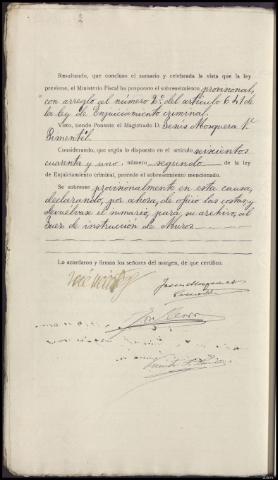 Resultando, que concluso el sumario y celebrada la vista que la ley
previene, el Ministerio Fiscal ha propuesto el sobreseimiento provisional,
con arreglo al número 2º del artículo 641 de
la ley de Enjuiciamiento criminal.
Visto, siendo Ponente el Magistrado D. Jesús Mosquera V.
Pimentel.
Considerando, que según lo dispuesto en el artículo seiscientos
cuarenta y uno, número segundo de la ley
de Enjuiciamiento criminal, procede el sobreseimiento mencionado.
Se sobresee provisionalmente en esta causa,
declarando, por ahora, de oficio las costas y
devuélvase el sumario, para su archivo, al
Juez de instrucción de Muros.
Lo acordaron y firman los señores del margen, de que certifico.
José
Jesús Mosquera
Pimentel